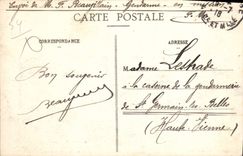 Envoi de M. F. Beauplain, Gendarme en
CARTE POSTALE
CORRESPONDANCE
ADRESSE
Bon souvenir
Madame Lethade
à la caserne de la gendarmerie
de St Germain-les-Belles
(Haute-Vienne)